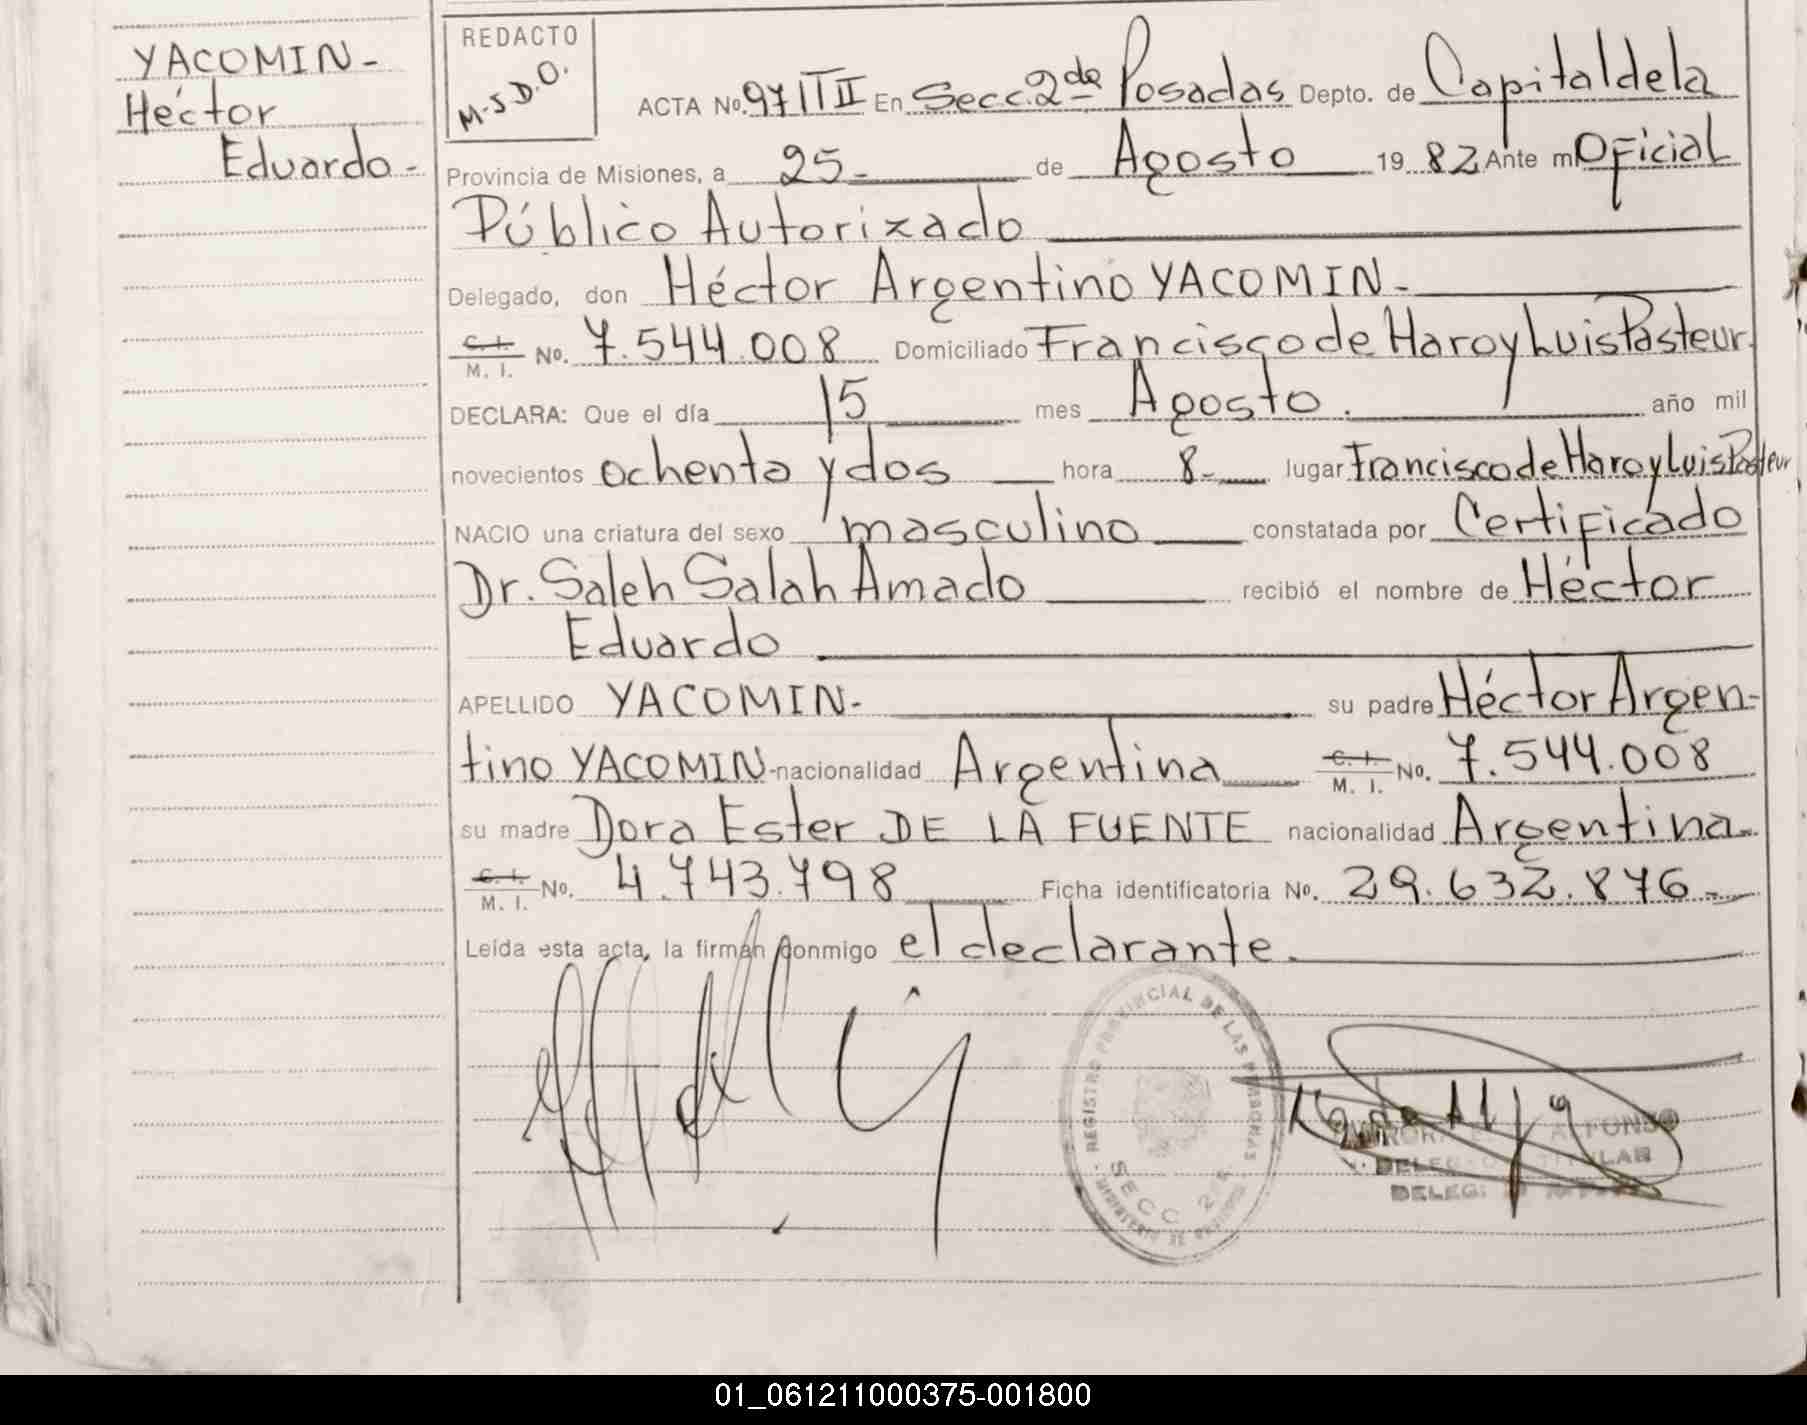 YACOMIN-
Héctor
Eduardo-
REDACTO
M.S.D.O.
ACTA No. 97 I T II En Secc. 2da Posadas Depto. de Capital de la
Provincia de Misiones, a 25- de Agosto 19 82 Ante mi Oficial
Público Autorizado
Delegado, don Héctor Argentino YACOMIN-
C. I. M. I. No. 7.544.008 Domiciliado Francisco de Haro y Luis Pasteur.
DECLARA: Que el día 15 mes Agosto. año mil
novecientos ochenta y dos hora 8- lugar Francisco de Haro y Luis Pasteur
NACIO una criatura del sexo masculino constatada por Certificado
Dr. Saleh Salah Amado recibió el nombre de Héctor
Eduardo
APELLIDO YACOMIN- su padre Héctor Argen-
tino YACOMIN- nacionalidad Argentina C. I. M. I. No. 7.544.008
su madre Dora Ester DE LA FUENTE nacionalidad Argentina-
C. I. M. I. No. 4.743.798 Ficha identificatoria No. 29.632.876-
Leída esta acta, la firman conmigo el declarante.
REGISTRO PROVINCIAL DE LAS PERSONAS
SECC 2
TITULAR
01_061211000375-001800